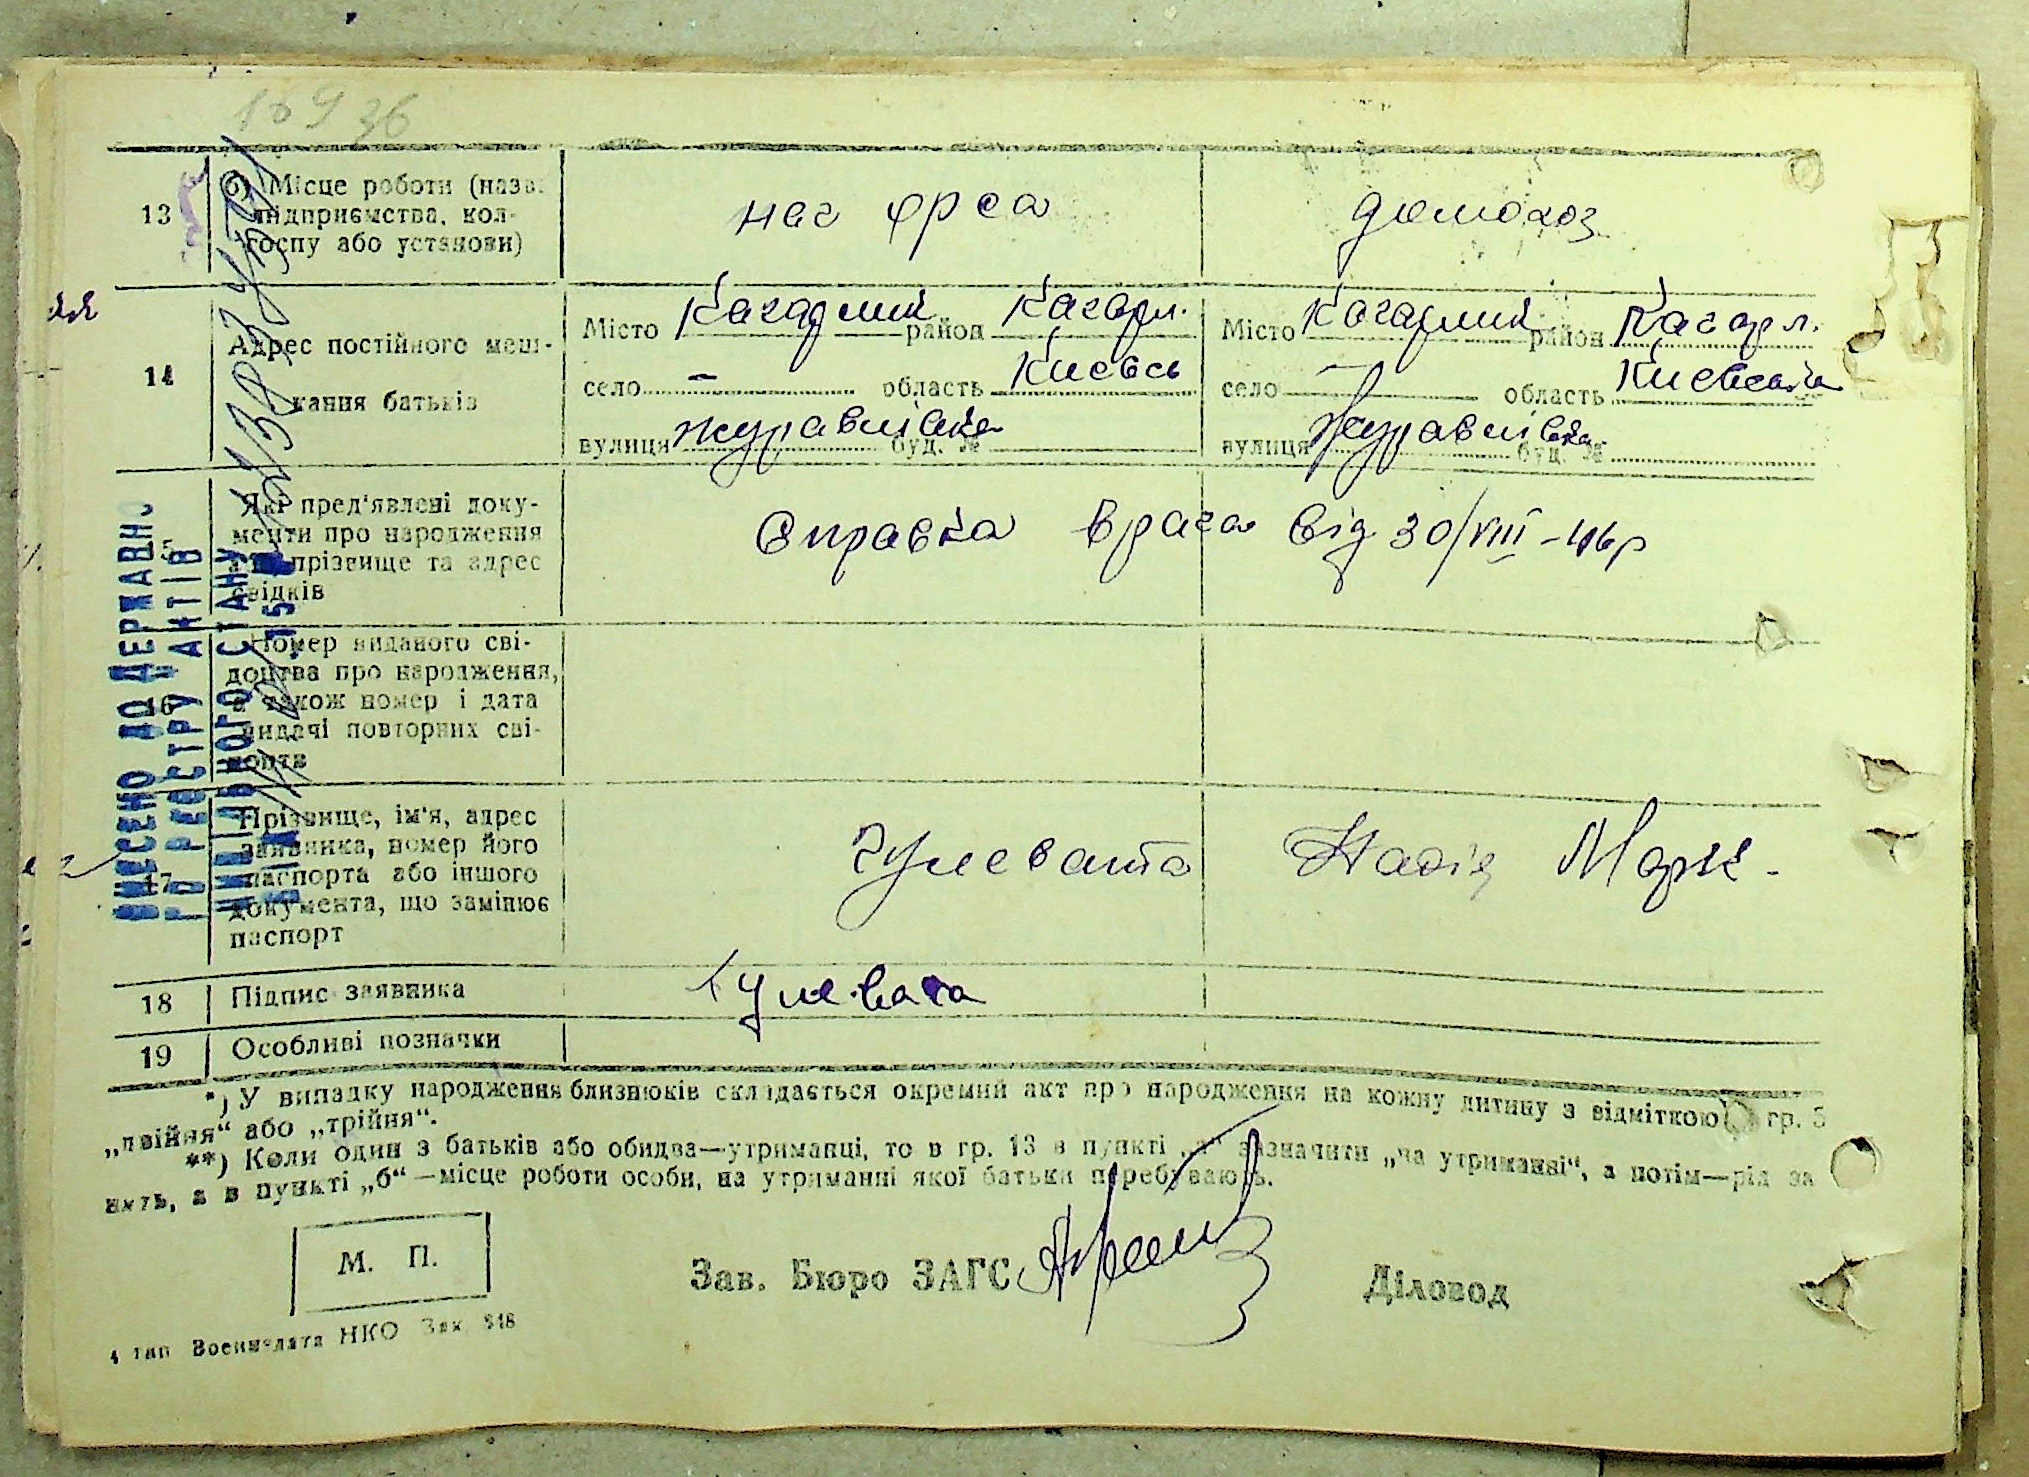 10936
13
б) Місце роботи (назв.
підприємства, кол-
госпу або установи)
нач орса
домохоз
14
Адрес постійного меш-
кання батьків
Місто Кагарлик район Кагарл.
село – область Києвсь
вулиця Журавлівка буд. №
Місто Кагарлик район Кагарл.
село – область Києвська
вулиця Журавлівка буд. №
5
Які пред'явлені доку-
менти про народження
прізвище та адрес
свідків
Справка врача від 30/VIII-46р
6
Номер виданого сві-
доцтва про народження,
а також номер і дата
видачі повторних сві-
доцтв
17
Прізвище, ім'я, адрес
заявника, номер його
паспорта або іншого
документа, що замінює
паспорт
Гулевата Надія Марк.
18
Підпис заявника
Гулевата
19
Особливі позначки
*) У випадку народження близнюків складається окремий акт про народження на кожну дитину з відміткою гр. 5
„двійня“ або „трійня“.
**) Коли один з батьків або обидва—утриманці, то в гр. 13 в пункті „а“ зазначити „на утриманні“, а потім—рід за
нять, а в пункті „б“—місце роботи особи, на утриманні якої батьки перебувають.
М. П.
Зав. Бюро ЗАГС
Діловод
4 тип Воениздата НКО Зак. 918
ВНЕСЕНО ДО ДЕРЖАВНО
ГО РЕЄСТРУ АКТІВ
ЦИВІЛЬНОГО СТАНУ